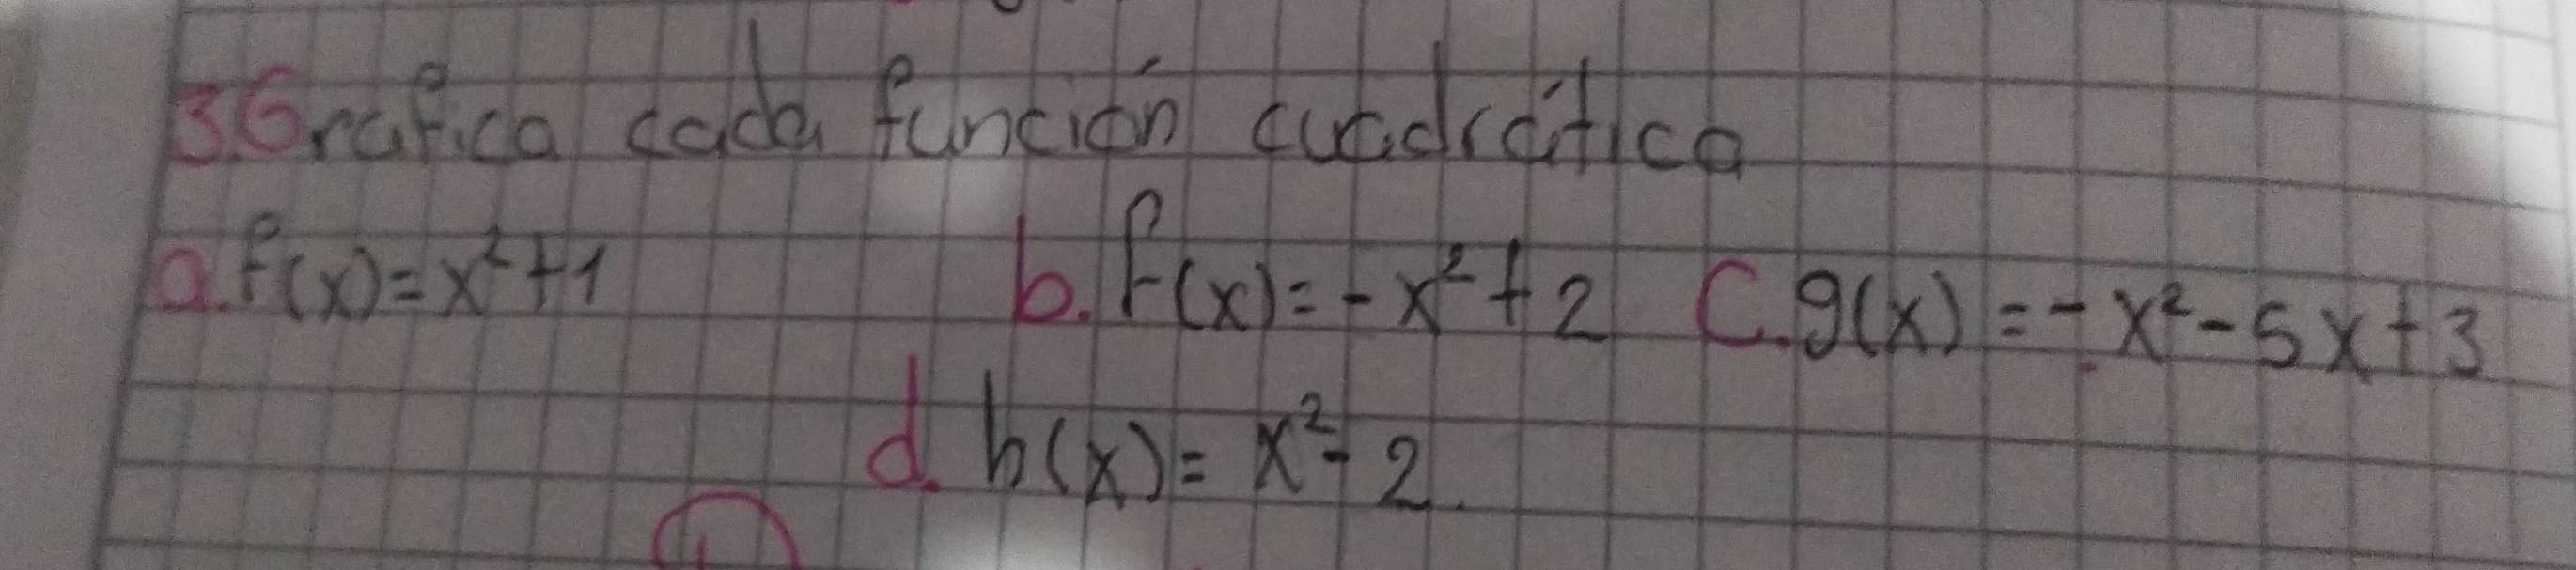 3.Grafica cada función cuadrática
a. f(x)=x²+1 b. f(x)=-x²+2 C. g(x)=-x²-5x+3
d. h(x)=x²-2